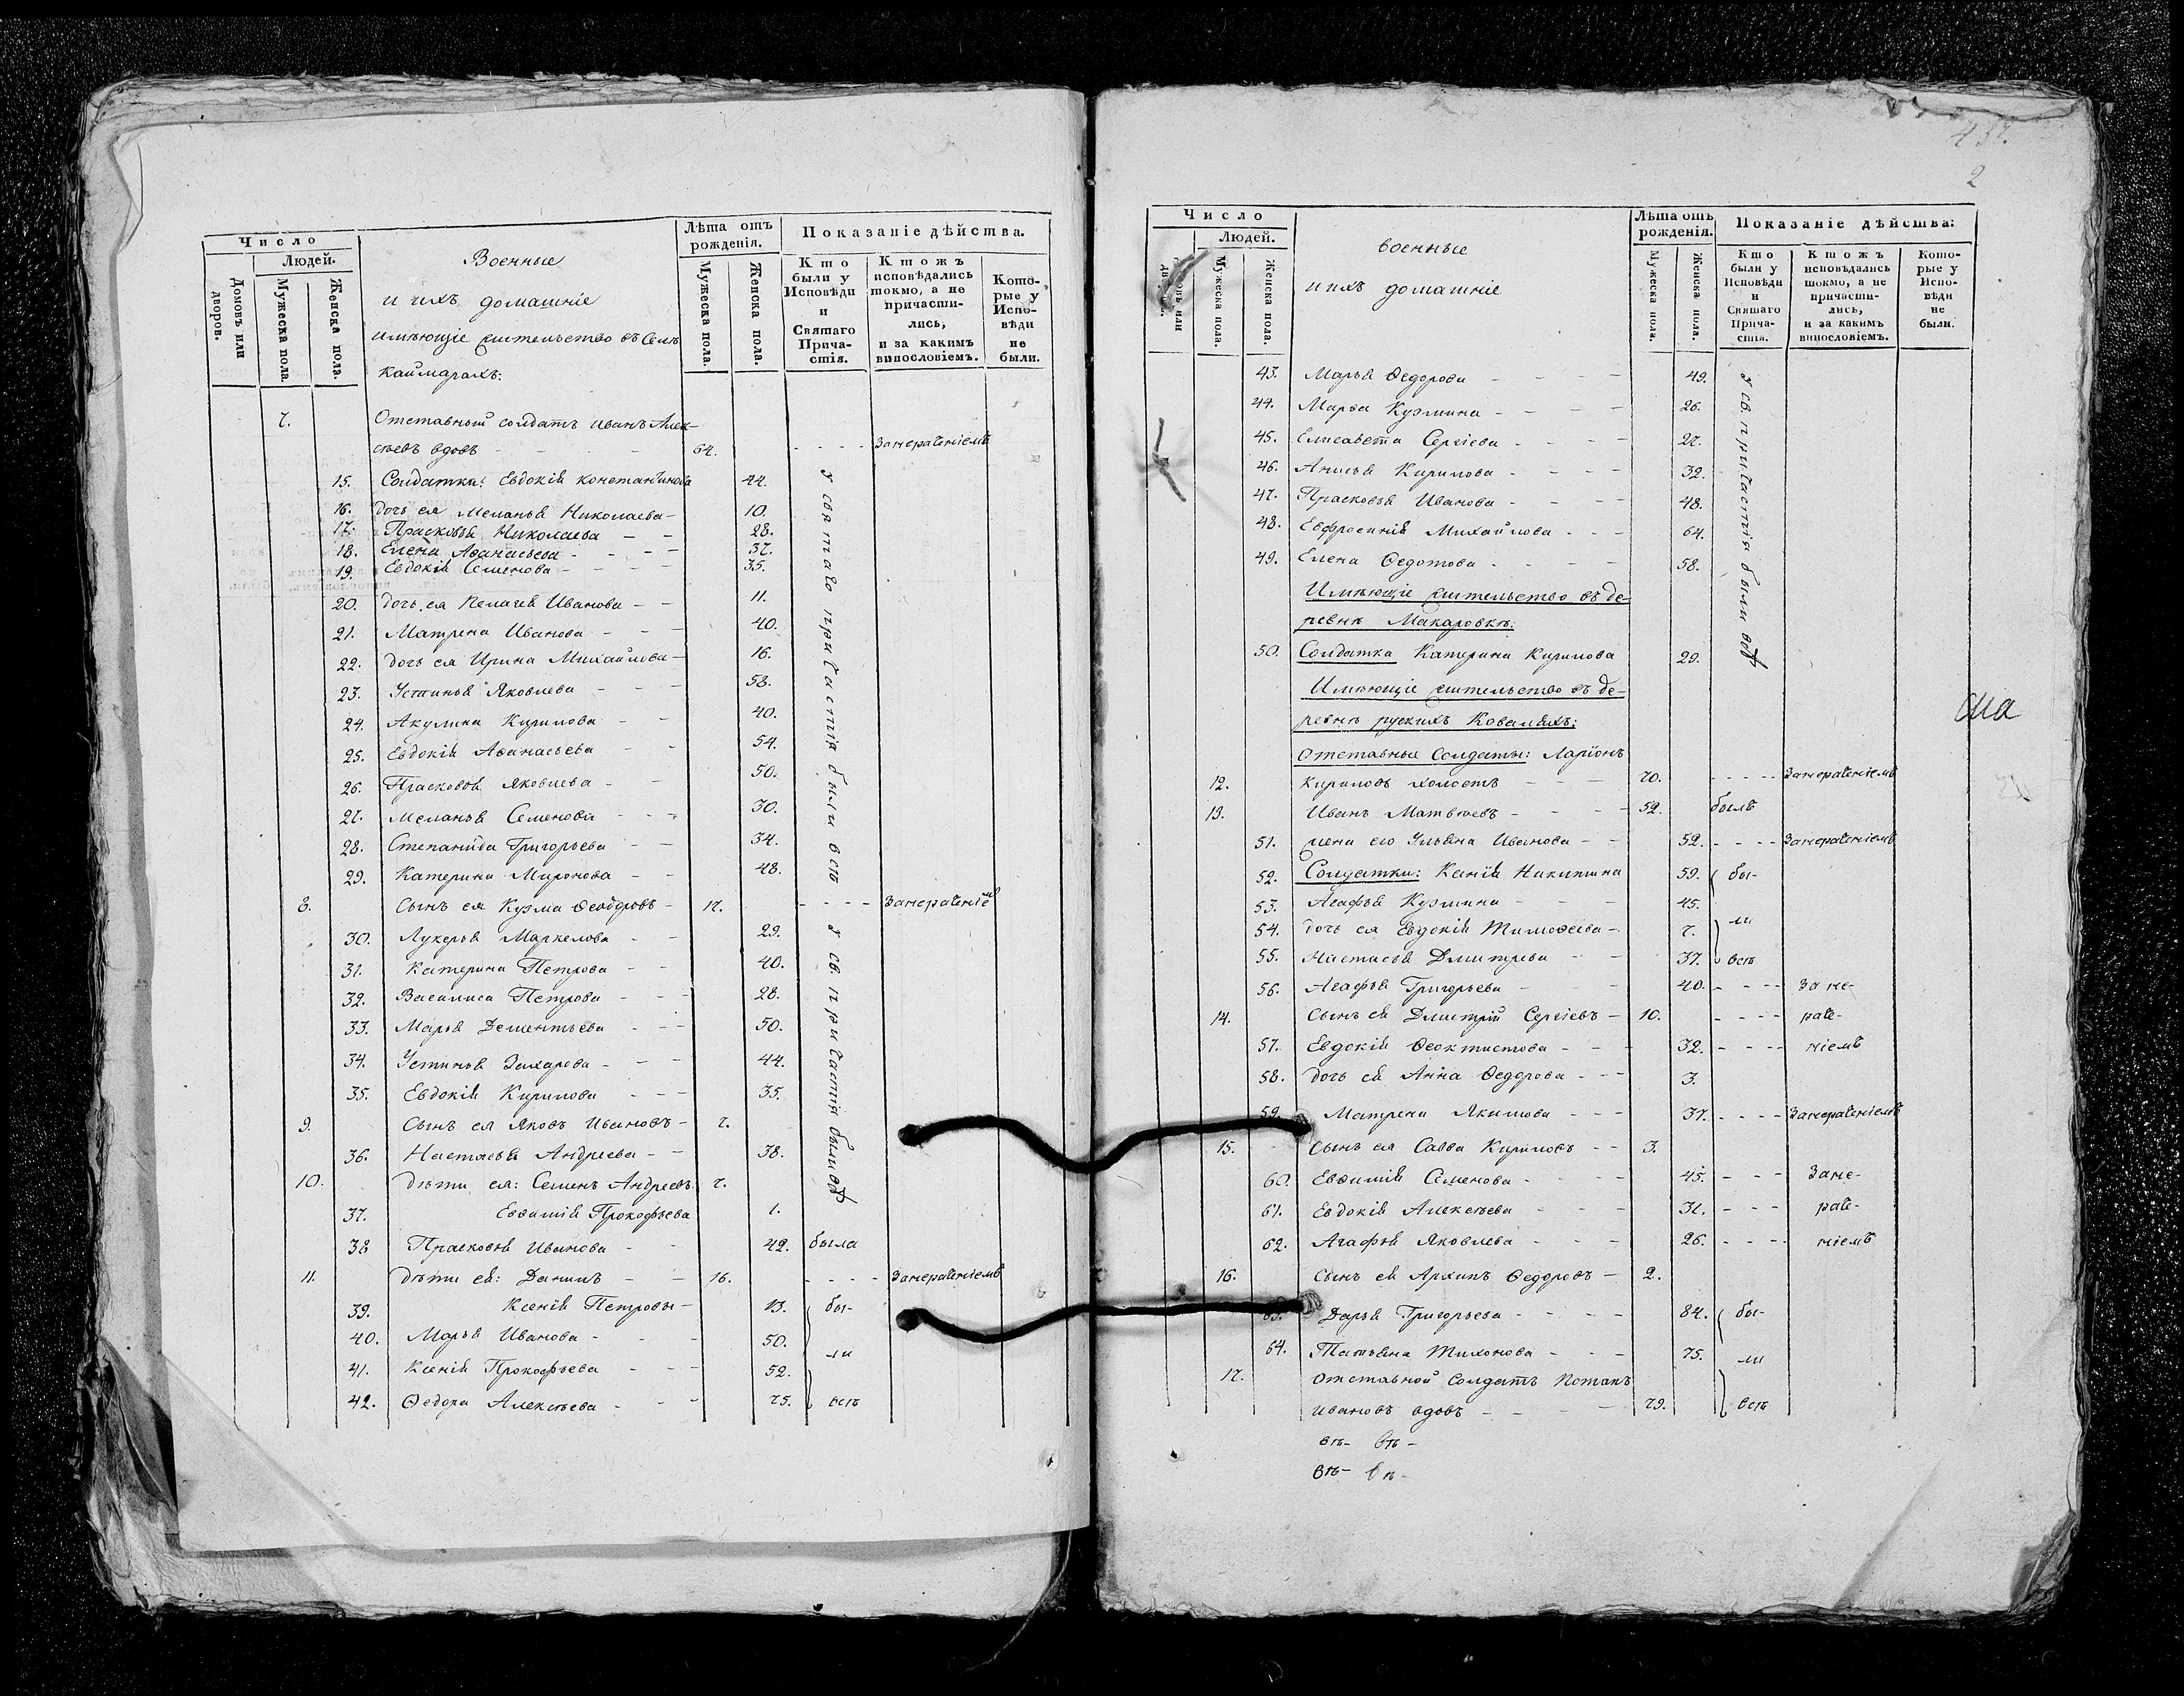 Число
Людей.
Домовъ или дворовъ.
Мужеска пола.
Женска пола.
Военные
и ихъ домашніе
имѣющіе жительство въ Селѣ
Каймарахъ:
Лѣта отъ рожденія.
Мужеска пола.
Женска пола.
Показаніе дѣйства.
Кто были у Исповѣди и Святаго Причастія.
Кто жъ исповѣдались токмо, а не причастились, и за какимъ винословіемъ.
Которые у Исповѣди не были.
7. Отставный солдатъ Иванъ Алек-
сѣевъ вдовъ - 64. - - - - За нераченіемъ
15. Солдатка: Евдокія Константинова 44.
16. дочь ея Меланья Николаева - 10.
17. Прасковья Николаева - - 28.
18. Елена Аѳанасьева - - - - 37.
19. Евдокія Семенова - - - - 35.
20. дочь ея Пелагея Иванова - - 11.
21. Матрена Иванова - - - 40.
22. дочь ея Ирина Михайлова - 16.
23. Устинья Яковлева - - - 58.
24. Акулина Кирилова - - 40.
25. Евдокія Аѳанасьева - - 54.
26. Прасковья Яковлева - - 50.
27. Меланья Семенова - - - 30.
28. Степанида Григорьева - - 34.
29. Катерина Миронова - - 48.
у святаго причастія были всѣ
8. Сынъ ея Кузма Ѳеодоровъ - 17. - - - - За нераченіемъ
30. Лукерья Маркелова - - 29.
31. Катерина Петрова - - 40.
32. Василиса Петрова - - - 28.
33. Марья Дементьева - - - 50.
34. Устинья Захарова - - - 44.
35. Евдокія Кирилова - - - 35.
9. Сынъ ея Яковъ Ивановъ - 7.
36. Настасья Андреева - - 38.
10. дѣти ея: Семенъ Андреевъ 7.
37. Евѳимія Прокофьева 1.
у св. причастія были всѣ
38 Прасковья Иванова - - 42. была
11. дѣти ея: Данилъ - - 16. - - - - За нераченіемъ
39. Ксенія Петровы - 13. бы-
40. Марья Иванова - - - 50.
41. Ксенія Прокофьева - - - 52. ли
42. Ѳедора Алексѣева - - - 75. всѣ
437.
2
Число
Людей.
Домовъ или дворовъ.
Мужеска пола.
Женска пола.
военные
и ихъ домашніе
Лѣта отъ рожденія.
Мужеска пола.
Женска пола.
Показаніе дѣйства:
Кто были у Исповѣди и Святаго Причастія.
Кто жъ исповѣдались токмо, а не причастились, и за какимъ винословіемъ.
Которые у Исповѣди не были.
43. Марья Ѳедорова - - - - 49.
44. Марѳа Кузмина - - - - 26.
45. Елисавета Сергіева - - - - 27.
46. Анисья Кирилова - - - - 32.
47. Прасковья Иванова - - - - 48.
48. Евфросинія Михайлова - - - 64.
49. Елена Ѳедотова - - - - 58.
Имѣющіе жительство въ де-
ревнѣ Макаровкѣ:
50. Солдатка Катерина Кирилова 29.
у св. причастія были всѣ
Имѣющіе жительство въ де-
ревнѣ рускихъ Ковалѣхъ:
Отставные Солдаты: Ларіонъ
12. Кириловъ холостъ - - - 70. - - - - За нераченіемъ
13. Иванъ Матвѣевъ - - - - 52. былъ
51. жена его Ульяна Иванова - - 52. - - - - За нераченіемъ
52. Солдатки: Ксенія Никитина 59. бы-
53. Агафья Кузмина - - - 45.
54. дочь ея Евдокія Тимоѳеева - 7. ли
55. Настасья Дмитрева - - 37. всѣ
56. Агафья Григорьева - - - 40. - - - - За не-
14. Сынъ ея Дмитрій Сергіевъ - 10. - - - - раче-
57. Евдокія Ѳеоктистова - - - 32. - - - - ніемъ
58. дочь ея Анна Ѳедорова - - - 3.
59. Матрена Якимова - - - 37. - - - - За нераченіемъ
15. Сынъ ея Савва Кириловъ - - 3.
60. Евѳимія Семенова - - - - 45. - - - За не-
61. Евдокія Алексѣева - - - 31. - - - раче-
62. Агафья Яковлева - - - 26. - - - - ніемъ
16. Сынъ ея Архипъ Ѳедоровъ - 2.
63. Дарья Григорьева - - - - 84. бы-
64. Татьяна Тихонова - - - 75. ли
17. Отставной Солдатъ Потапъ
Ивановъ вдовъ - - - - 79. всѣ